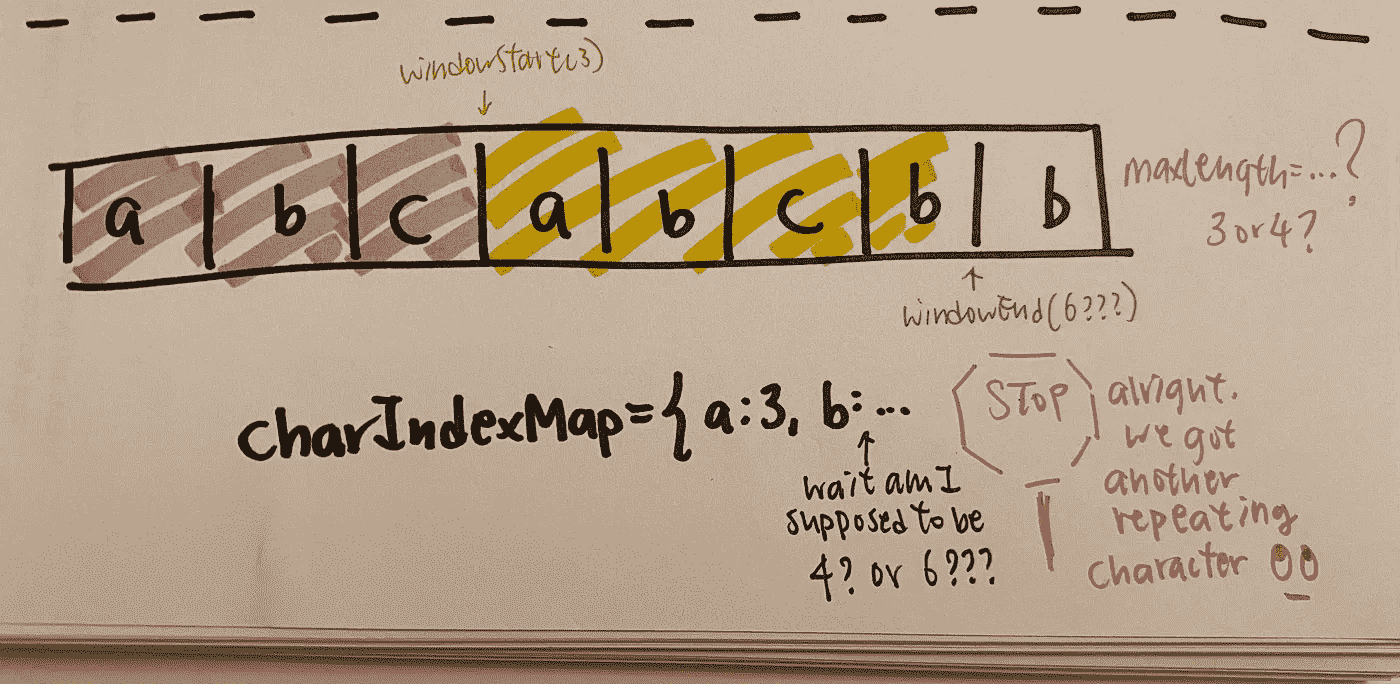 windowStart(3)
↓
a b c a b c b b
maxlength=...?
3 or 4?
↑
windowEnd(6???)
charIndexMap={ a:3, b:...
↑
wait am I
supposed to be
4? or 6???
STOP
alright.
we got
another
repeating
character